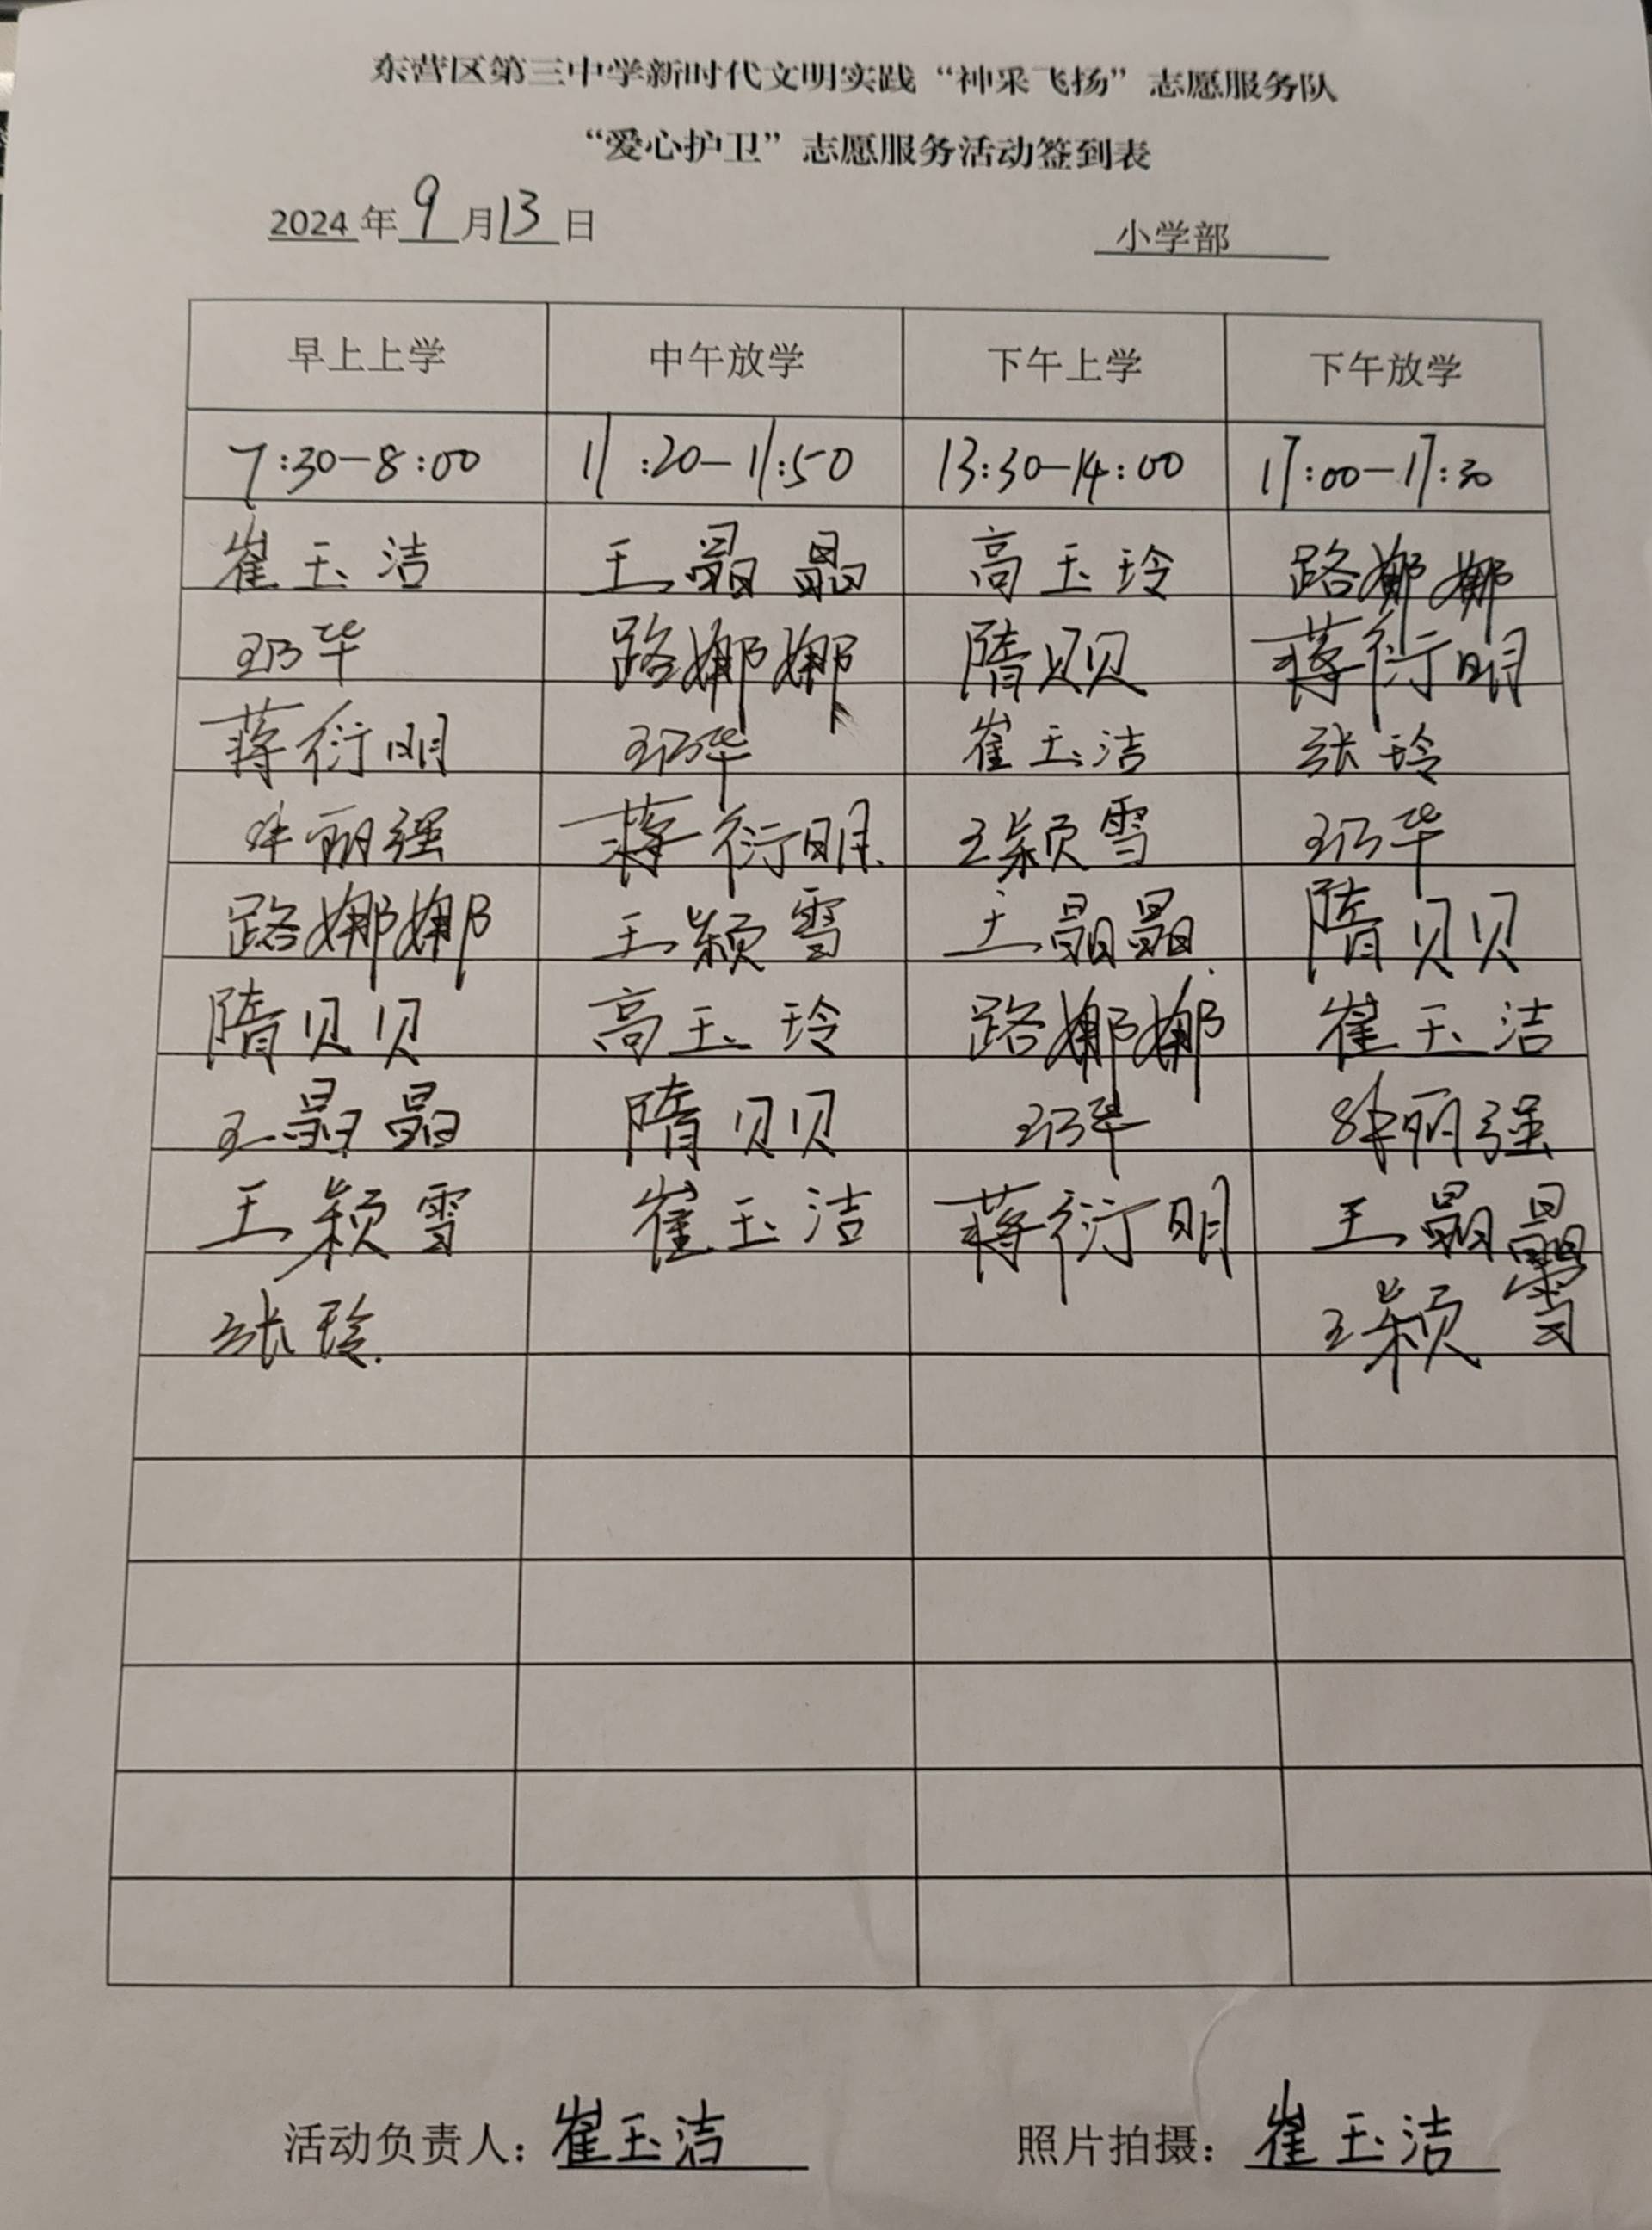 东营区第三中学新时代文明实践“神采飞扬”志愿服务队
“爱心护卫”志愿服务活动签到表
2024年 9 月 13 日 小学部
早上上学 中午放学 下午上学 下午放学
7:30-8:00 11:20-11:50 13:30-14:00 17:00-17:30
崔玉洁 王晶晶 高玉玲 路娜娜
路娜娜 隋贝贝 蒋衍明
蒋衍明 崔玉洁 张玲
丽强 蒋衍明 王颖雪
路娜娜 王颖雪 王晶晶 隋贝贝
隋贝贝 高玉玲 路娜娜 崔玉洁
王晶晶 隋贝贝 丽强
王颖雪 崔玉洁 蒋衍明 王晶晶
张玲 王颖雪
活动负责人：崔玉洁 照片拍摄：崔玉洁